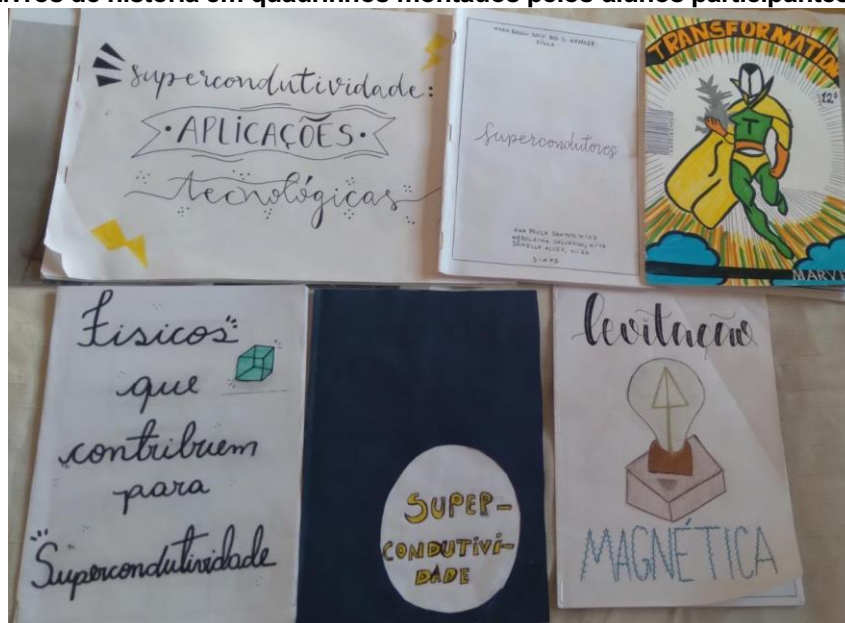 Livros de história em quadrinhos montados pelos alunos participantes
Supercondutividade:
•APLICAÇÕES•
tecnológicas
Supercondutores
TRANSFORMATION
12$
T
MARV
Físicos
que
contribuem
para
Supercondutividade
SUPER-
CONDUTIVI-
DADE
levitação
MAGNÉTICA